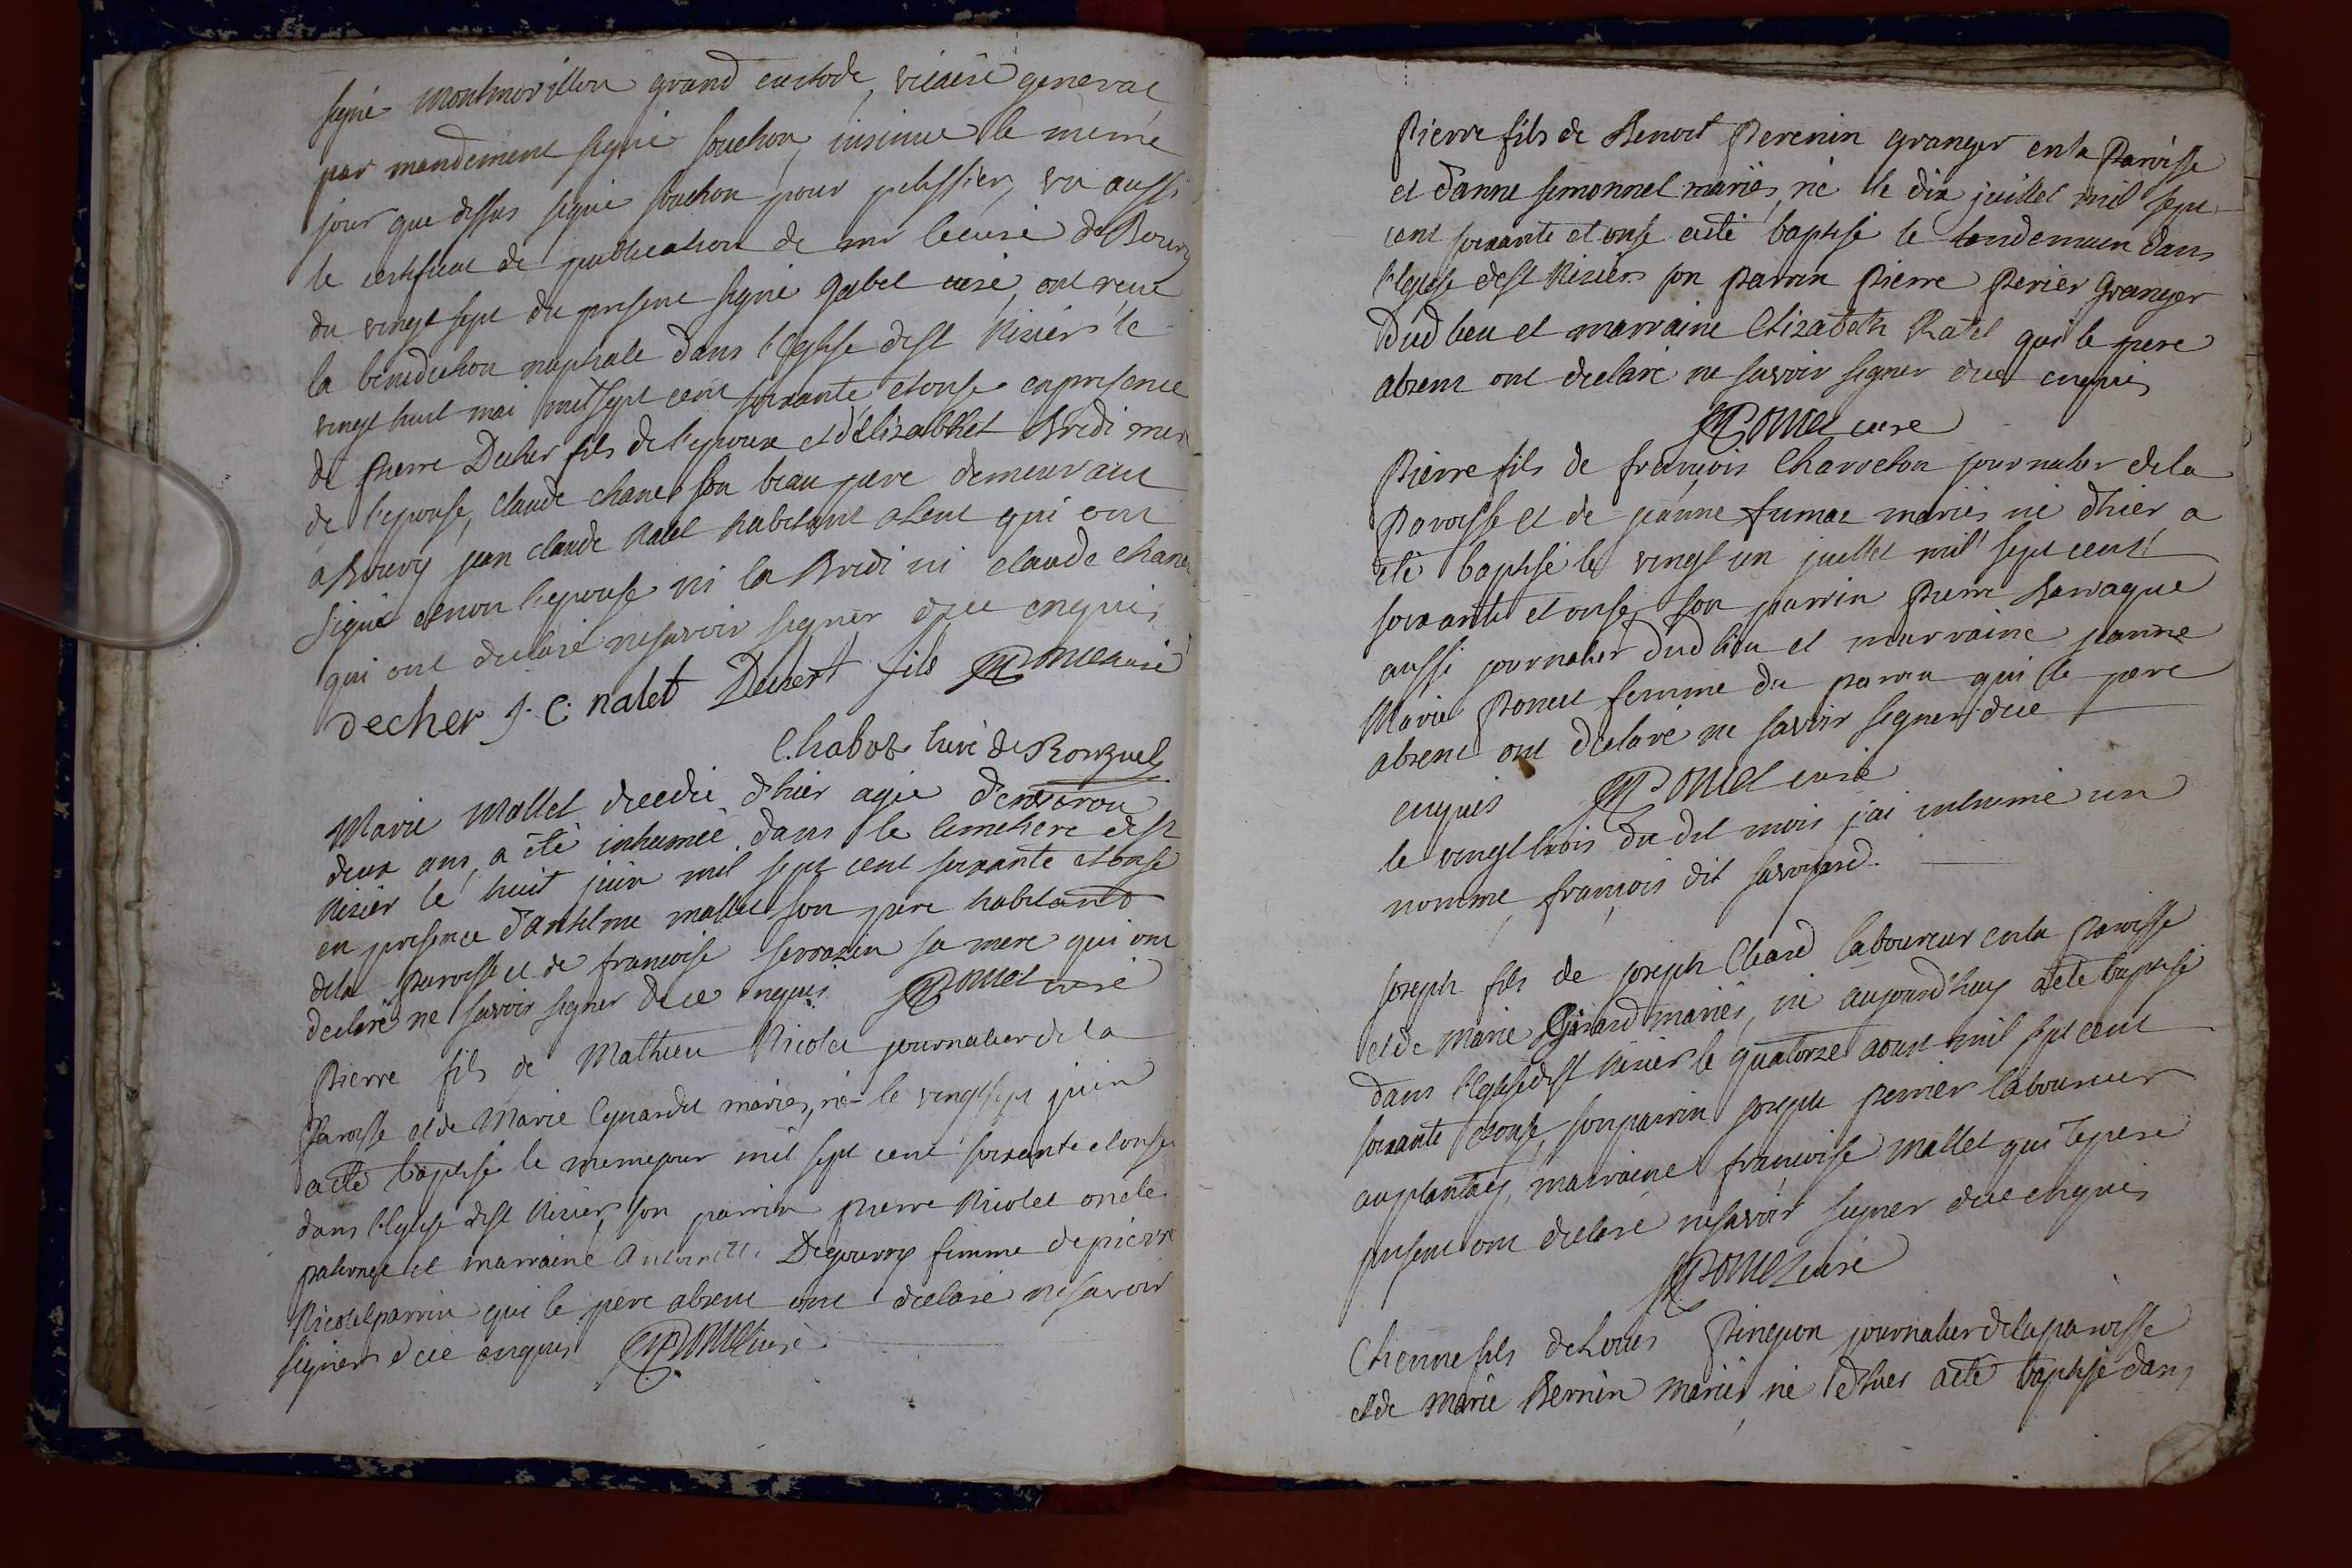 signé Montmorillon grand custode, vicaire general
par mandement signé souchon, insinue le meme
jour que dessus signé souchon pour pelissier, vu aussi
le certificat de publication de mr le curé de Bourg
du vingt sept du present signé gabet curé, ont recu
la benediction nuptiale dans l'eglise de st Nizier le
vingt huit mai mil sept cent soixante et onse en presence
de Pierre Decher fils de l'epoux et d'elizabhet Bredi mere
de l'epouse, claude chanel son beau pere demeurant
a Bourg jean claude Nalet habitant a lent qui ont
signé et non l'epouse ni la Bredi ni claude chanel
qui ont declaré ne savoir signer de ce enquis
Decher J. C. nalet Decher fils Pomet curé
Chabot curé de Ronzuel
Marie Mallet decedée d'hier agée d'environ
deux ans, a été inhumée dans le cimetiere de st
Nizier le huit juin mil sept cent soixante et onse
en presence d'anthelme mallet son pere habitant
de la paroisse et de francoise serrazin sa mere qui ont
declaré ne savoir signer de ce enquis Pomet curé
Pierre fils de Mathieu Nicolet journalier de la
Paroisse et de Marie Cquardet mariés, né le vingt sept juin
a été baptisé le meme jour mil sept cent soixante et onse
dans l'eglise de st Nizier, son parrin pierre Nicolet oncle
paternel et marraine Antoinette Degourry femme de pierre
Nicolet parrin qui le pere absent ont declaré ne savoir
signer de ce enquis Pomet curé
Pierre fils de Benoit Perenin granger en la Paroisse
et d'anne simonnet mariés, né le dix juillet mil sept
cent soixante et onse a été baptisé le lendemain dans
l'eglise de st Nizier son parrin Pierre Perier granger
dud lieu et marraine Elizabeth Ratel qui le pere
absent ont declaré ne savoir signer de ce enquis
Pomet curé
Pierre fils de francois Charreton journalier de la
Paroisse et de jeanne fumat mariés né d'hier, a
été baptisé le vingt un juillet mil sept cent
soixante et onse, son parrin Pierre Barraque
aussi journalier dud lieu et marraine jeanne
Marie Poncet femme du parrin qui le pere
absent ont declaré ne savoir signer de ce
enquis Pomet curé
le vingt trois du dit mois j'ai inhumé un
nommé françois dit savoyard.
joseph fils de joseph Chard laboureur en la Paroisse
et de Marie Girard mariés, né aujourd'huy a été baptisé
dans l'eglise de st Nizier le quatorze aoust mil sept cent
soixante et onse, son parrin joseph perrier laboureur
au plantay, marraine françoise Mallet qui le pere
present ont declaré ne savoir signer de ce enquis
Pomet curé
Etienne fils de Louis Pingeon journalier de la paroisse
et de Marie Bernin mariés né d'hier a été baptisé dans